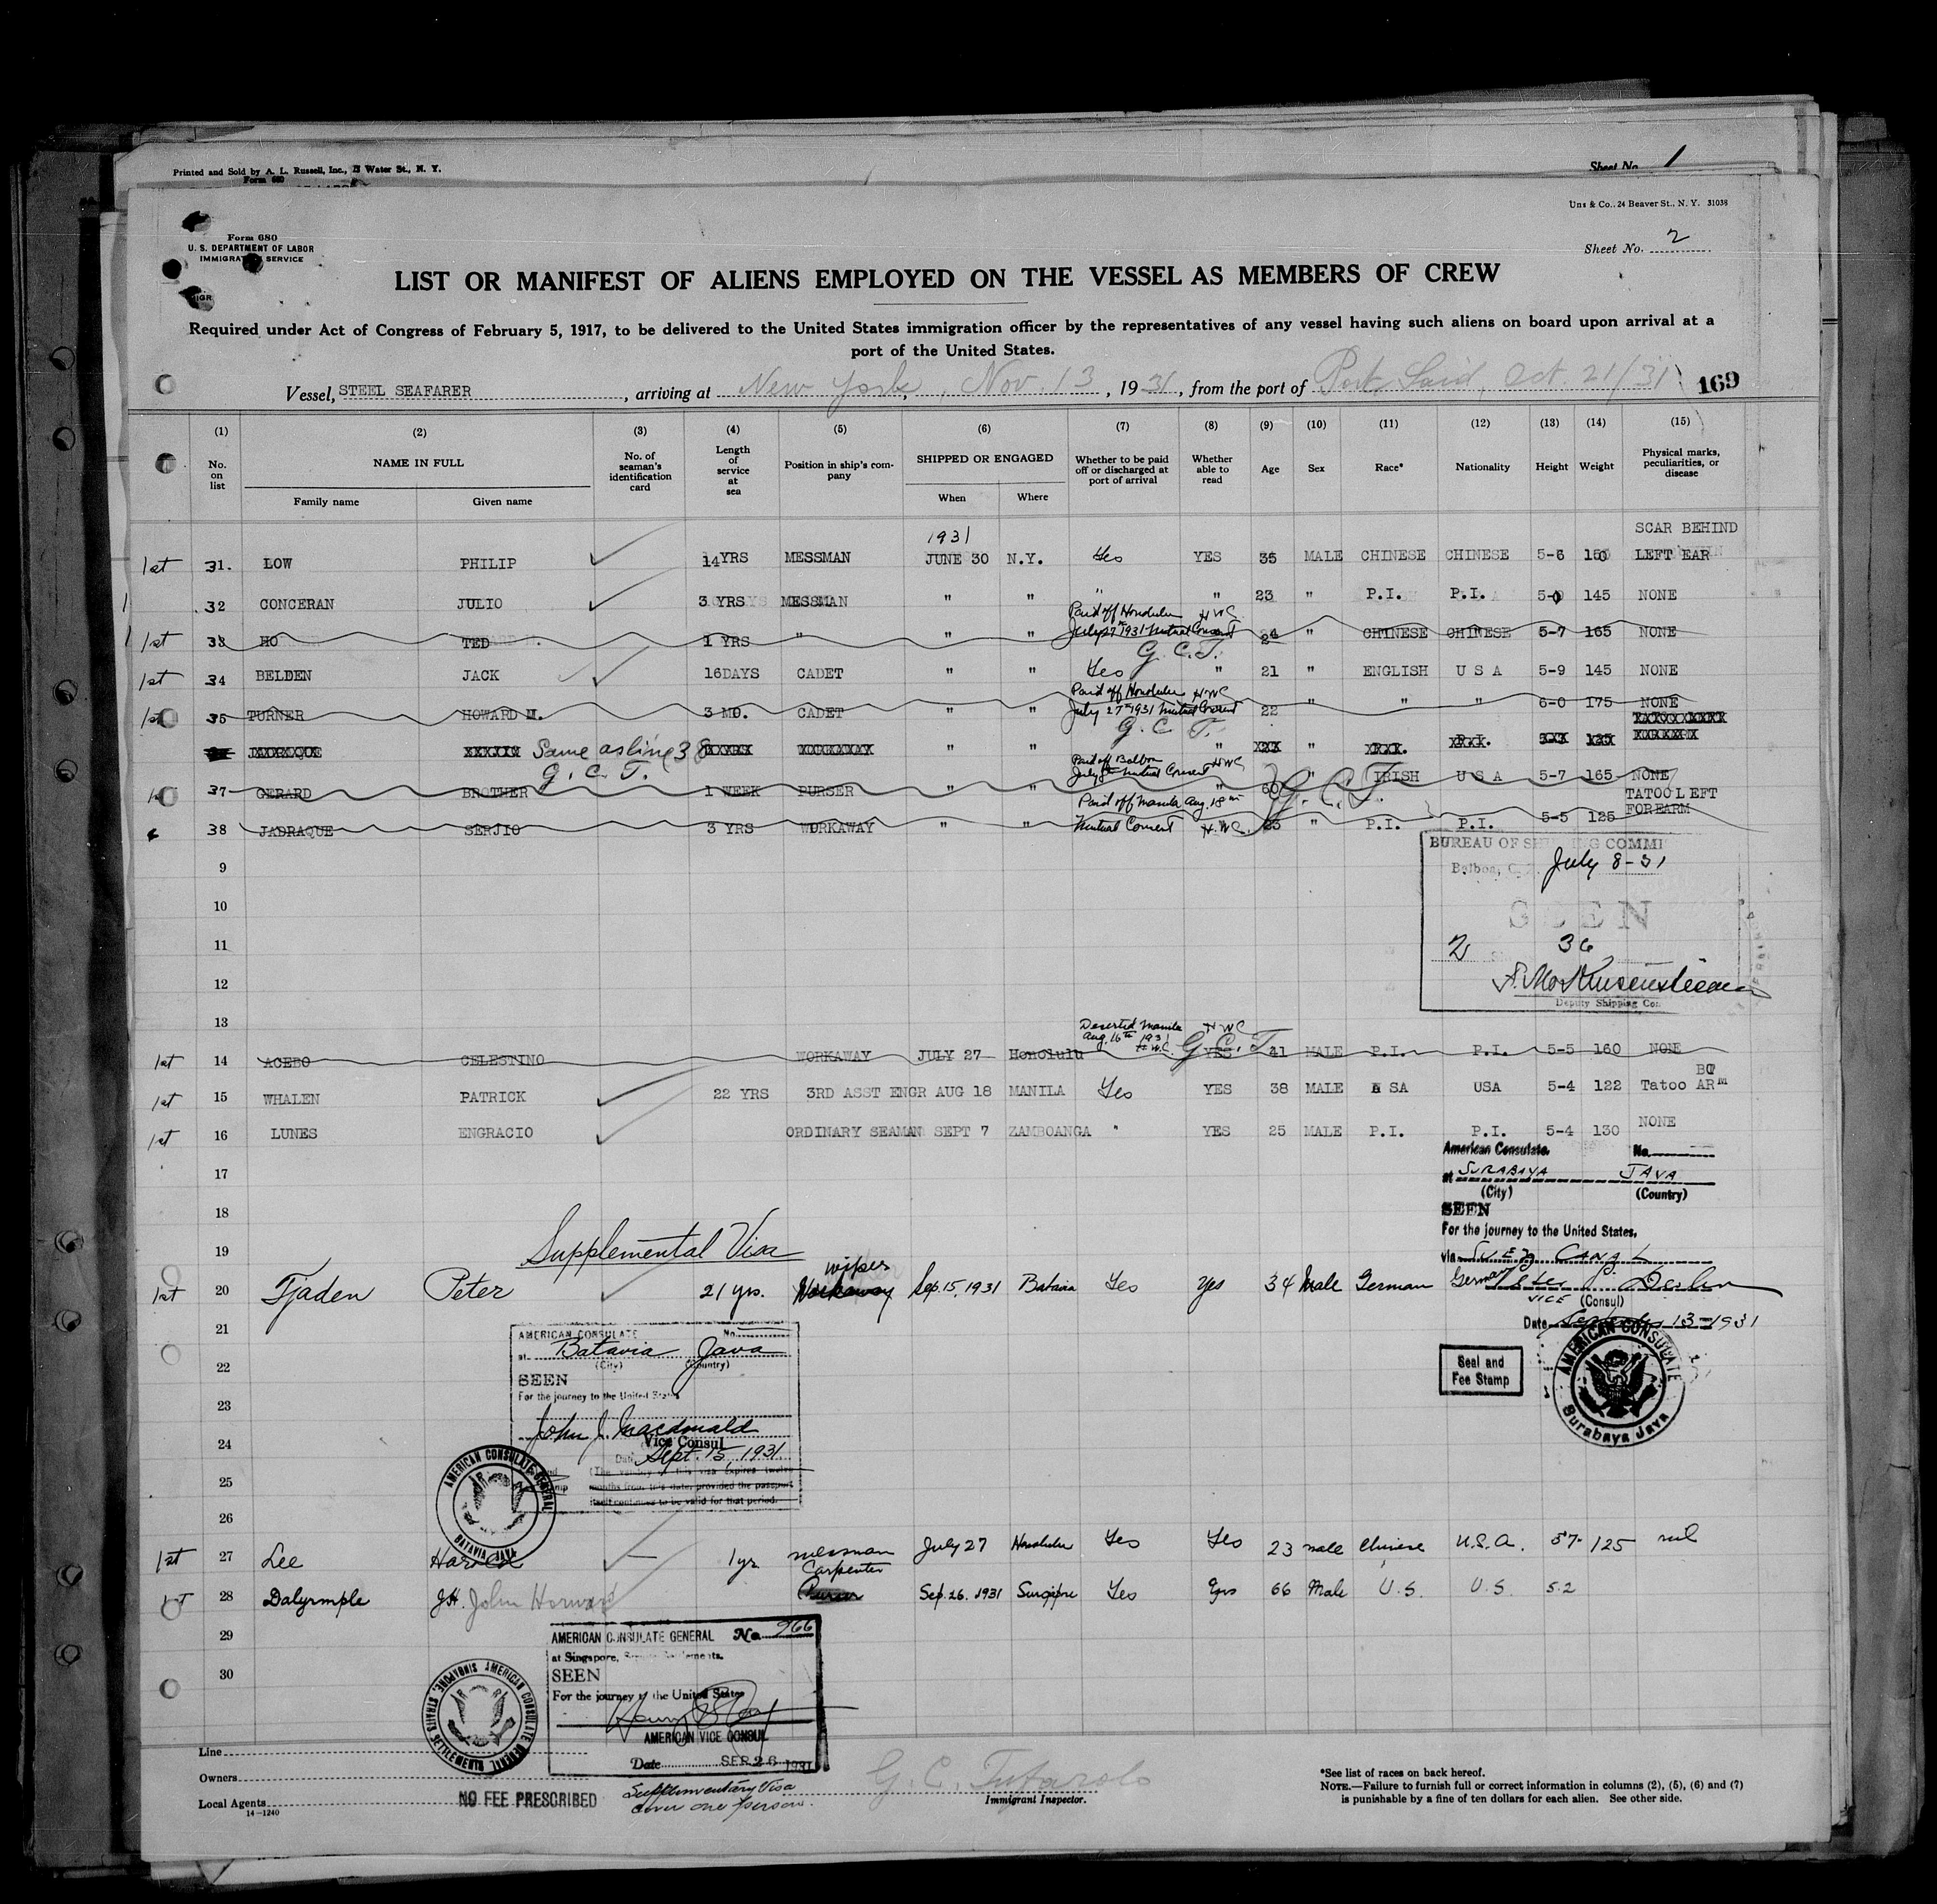 Printed and Sold by A. L. Russell, Inc., 13 Water St., N. Y.
Form 680
Sheet No. 1
Uns & Co., 24 Beaver St., N. Y. 31038
Form 680
U. S. DEPARTMENT OF LABOR
IMMIGRATION SERVICE
Sheet No. 2
LIST OR MANIFEST OF ALIENS EMPLOYED ON THE VESSEL AS MEMBERS OF CREW
Required under Act of Congress of February 5, 1917, to be delivered to the United States immigration officer by the representatives of any vessel having such aliens on board upon arrival at a
port of the United States.
Vessel, STEEL SEAFARER, arriving at New York, Nov. 13, 1931, from the port of Port Said, Oct. 21/31 169
(1) (2) (3) (4) (5) (6) (7) (8) (9) (10) (11) (12) (13) (14) (15)
No. on list
NAME IN FULL
Family name Given name
No. of seaman's identification card
Length of service at sea
Position in ship's company
SHIPPED OR ENGAGED
When Where
Whether to be paid off or discharged at port of arrival
Whether able to read
Age
Sex
Race*
Nationality
Height
Weight
Physical marks, peculiarities, or disease
1931 SCAR BEHIND
1st 31. LOW PHILIP 14 YRS MESSMAN JUNE 30 N.Y. Yes YES 35 MALE CHINESE CHINESE 5-6 150 LEFT EAR
32 CONCERAN JULIO 3 YRS MESSMAN " " " " 23 " P.I. P.I. 5-0 145 NONE
Paid off Honolulu H.W.C.
1st 33 HO TED 1 YRS " " " July 27th 1931 Mutual Consent 24 " CHINESE CHINESE 5-7 165 NONE
G. C. T.
1st 34 BELDEN JACK 16 DAYS CADET " " Yes " 21 " ENGLISH U S A 5-9 145 NONE
Paid off Honolulu H.W.C.
1st 35 TURNER HOWARD M. 3 MO. CADET " " July 27th 1931 Mutual Consent 22 " " " 6-0 175 NONE
G. C. T.
Same as line 38 " " " "
G. C. T.
Paid off Balboa H.W.C.
1st 37 GERARD BROTHER 1 WEEK PURSER " " July 8th Mutual Consent 60 " IRISH U S A 5-7 165 NONE
G. C. T.
Paid off Manila Aug. 18th TATOO LEFT
38 JADRAQUE SERJIO 3 YRS WORKAWAY " " Mutual Consent H.W.C. 25 " P.I. P.I. 5-5 125 FOREARM
BUREAU OF SHIPPING COMMI
9 Balboa, C. Z. July 8-31
10
SEEN
11 2 36
12
Deputy Shipping Co.
13
Deserted Manila H W C
Aug. 16th 1931 H.W.C. G. C. T.
1st 14 ACEBO CELESTINO WORKAWAY JULY 27 Honolulu YES 41 MALE P.I. P.I. 5-5 160 NONE
1st 15 WHALEN PATRICK 22 YRS 3RD ASST ENGR AUG 18 MANILA Yes YES 38 MALE U SA USA 5-4 122 Tatoo ARM
1st 16 LUNES ENGRACIO ORDINARY SEAMAN SEPT 7 ZAMBOANGA " YES 25 MALE P.I. P.I. 5-4 130 NONE
American Consulate. No.
17 at SURABAYA JAVA
(City) (Country)
18 SEEN
For the journey to the United States.
19 Supplemental Visa via SUEZ CANAL
wiper
1st 20 Tjaden Peter 21 yrs. Workaway Sep. 15, 1931 Batavia Yes yes 34 Male German German
VICE (Consul)
21 Date September 13 1931
AMERICAN CONSULATE Surabaya Java
Seal and
Fee Stamp
AMERICAN CONSULATE No.
at Batavia Java
22 (City) (Country)
SEEN
For the journey to the United States
23
John J. Macdonald
24 Vice Consul
Date Sept. 15, 1931
(The validity of this visa expires twelve
25 months from this date, provided the passport
itself continues to be valid for that period.
AMERICAN CONSULATE GENERAL BATAVIA JAVA
26
1st 27 Lee Harold 1 yr messman July 27 Honolulu Yes Yes 23 male Chinese U.S.A. 57- 125 nil
Carpenter
1st 28 Dalyrmple J.H. John Horward Sep. 26, 1931 Singapore Yes Yes 66 Male U.S. U.S. 5.2
29 AMERICAN CONSULATE GENERAL No. 966
at Singapore, Straits Settlements.
30 SEEN
For the journey to the United States
AMERICAN VICE CONSUL
Date SEP 26 1931
AMERICAN CONSULATE GENERAL SINGAPORE, STRAITS SETTLEMENTS
Line
Owners
Local Agents
14—1240
NO FEE PRESCRIBED
Supplementary Visa
cover one person.
G. C. Tufarolo
Immigrant Inspector.
*See list of races on back hereof.
NOTE.—Failure to furnish full or correct information in columns (2), (5), (6) and (7)
is punishable by a fine of ten dollars for each alien. See other side.